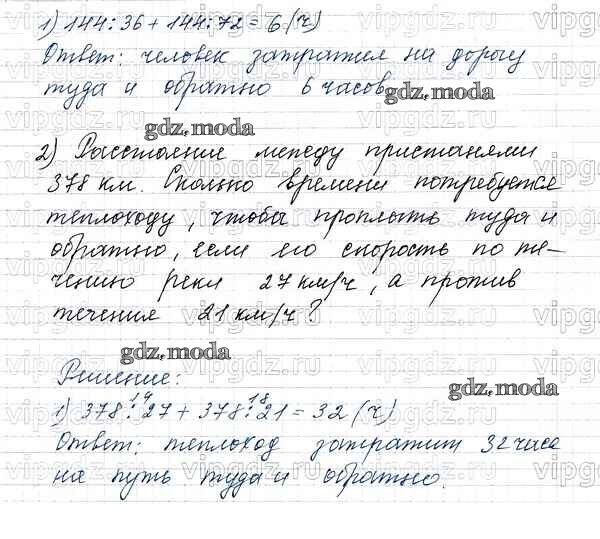 1) 144:36 + 144:72 = 6 (ч)
Ответ: человек затратил на дорогу
туда и обратно 6 часов.
gdz.moda
gdz.moda
2) Расстояние между пристанями
378 км. Сколько времени потребуется
теплоходу, чтобы проплыть туда и
обратно, если его скорость по те-
чению реки 27 км/ч, а против
течения 21 км/ч?
gdz.moda
Решение:
gdz.moda
14 18
1) 378:27 + 378:21 = 32 (ч)
Ответ: теплоход затратит 32 часа
на путь туда и обратно.
vipgdz.ru